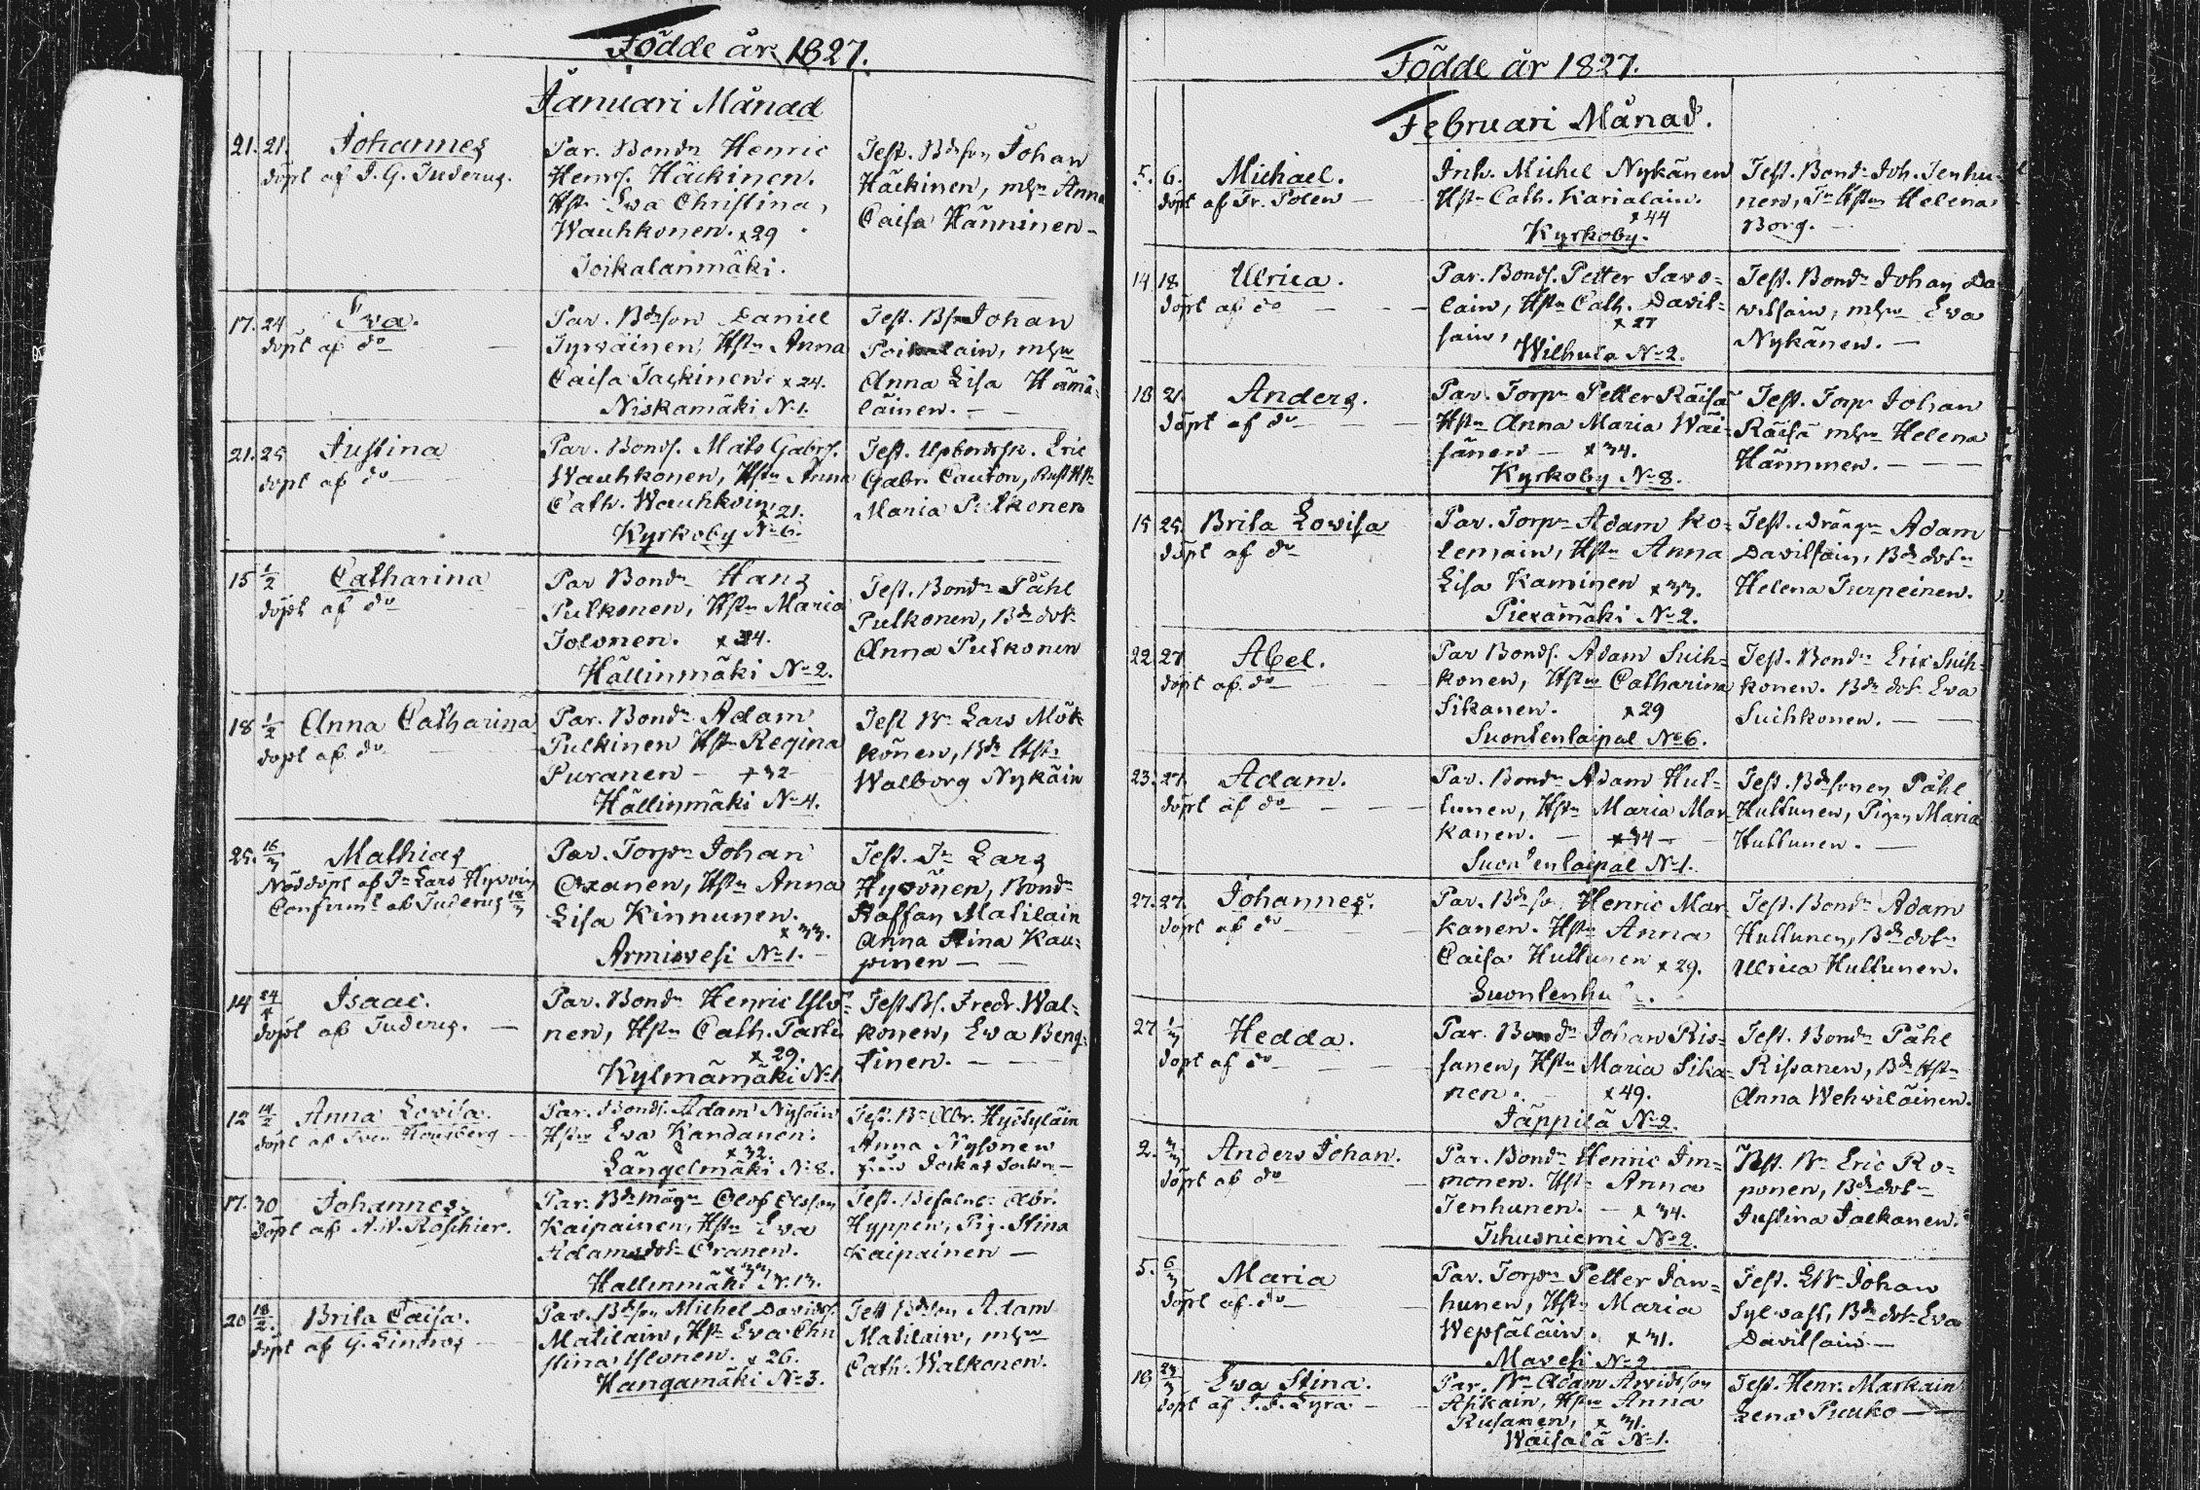 Födde år 1827.
Januari Månad
21. 21. Johannes
döpt af J. G. Tuderus.
Par. Bondn Henric
Henrs. Häckinen.
Hstr Eva Christina
Wauhkonen. x29
Joikalanmäki.
Test. Bdeson Johan
Häckinen, mhn Anna
Caisa Hänninen –
17. 24 Eva.
döpt af do
Par. Bdeson Daniel
Tyrväinen, Hstn Anna
Caisa Jäskinen. x24.
Niskamäki No 1.
Test. Johan
Poikalain, mhn
Anna Lisa Hämä=
läinen. –
21. 25 Justina
döpt af do
Par. Bonds. Mats Gabrs.
Wauhkonen, Hstn Anna
Cath. Wauhkoin
x21.
Kyrkoby No 6.
Test. Eric
Gabr. Cauton,
Maria Pulkonen
15 1/2 Catharina
döpt af do
Par Bondn Hans
Pulkonen, Hstn Maria
Tolonen. x34.
Hällinmäki No 2.
Test. Bondn Påhl
Pulkonen, Bde dotr
Anna Pulkonen
18 1/2 Anna Catharina
döpt af do
Par. Bondn Adam
Pulkinen Hstn Regina
Puranen – x32
Hällinmäki No 4.
Test Bn Lars Mök=
könen, Bde Hstr
Walborg Nykäin
25. 16/3 Mathias
Nöddöpt af Lars Hyvöin
Confirmt af Tuderus 18/3
Par. Torpn Johan
Oranen, Hstn Anna
Lisa Kinnunen.
x33.
Armisvesi No 1. –
Test. Lars
Hyvönen, Bondn
Staffan Matilain
Anna Stina Kau=
pinen –
14 24/4 Isaac.
döpt af Tuderus. –
Par. Bondn Henric Ylö=
nen, Hstn Cath. Parta
x29.
Kylmämäki No 1
Test. Bs. Fredr. Wal=
konen, Eva Beng=
tinen. –
12 14/2 Anna Lovisa.
döpt af Sven Housberg
Par. Bonds. Adam Nysöin
Hstn Eva Kandanen.
x32.
Längelmäki No 8.
Test. Bn Abr. Hyötyläin
Anna Nysönen
17. 30 Johannes
döpt af A. W. Roschier.
Par. Bde mågn Olof Olsson
Kaipainen, Hstn Eva
Adamsdotr Oranen.
x33
Hällinmäki No 13.
Test. Abr.
Hyppen, Pig. Stina
Kaipainen –
20 18/2. Brita Caisa.
döpt af G. Lindros
Par. Bdeson Michel Davids.
Matilain, Hstr Eva Chri
stina Ylönen. x26.
Hangamäki No 3.
Test Bdeson Adam
Matilain, mhn
Cath. Walkonen.
Födde år 1827.
Februari Månad.
5. 6. Michael.
döpt af Fr. Polen
Inh. Michel Nykänen
Hstr Cath. Karialain.
x44
Kyrkoby.
Test. Bondn Joh. Jenhu=
nen, Hstrn Helena
Borg. –
14 18 Ulrica.
döpt af do
Par. Bonds. Petter Savo=
lain, Hstn Cath. Davit=
x27
sain,
Wilhula No 2.
Test. Bondn Johan Da
vitsain, mhn Eva
Nykänen. –
18 21. Anders.
döpt af do
Par. Torpn Petter Räisä
Hstn Anna Maria Wäi=
sänen – x34.
Kyrkoby No 8.
Test. Torpn Johan
Räisä mhn Helena
Hänninen. –
15 25. Brita Lovisa
döpt af do
Par. Torpn Adam Ko=
lemain, Hstn Anna
Lisa Kaminen x33.
Piexämäki No 2.
Test. drängn Adam
Davitsain, Bde dotn
Helena Turpeinen.
22. 27 Abel.
döpt af do
Par Bonds. Adam Suih=
konen, Hstn Catharina
Sikanen. x29
Suontenlaipal No 6.
Test. Bondn Eric Suih=
konen. Bde dotr Eva
Suihkonen. –
23. 27. Adam.
döpt af do
Par. Bondn Adam Hut=
tunen, Hstn Maria Mar
kanen. – x34 –
Suontenlaipal No 1.
Test. Bdesonen Påhl
Huttunen, Pigan Maria
Huttunen. –
27. 27. Johannes.
döpt af do
Par. Bdeso. Henric Mar
kanen. Hstn Anna
Caisa Huttunen x29.
Test. Bondn Adam
Huttunen, Bde dotn
Ulrica Huttunen.
27 1/3 Hedda.
döpt af do
Par. Bondn Johan Ris=
sanen, Hstn Maria Sika=
nen. x49.
Jäppilä No 2.
Test. Bondn Påhl
Rissanen, Bde Hstn
Anna Wehviläinen.
2. 3/3 Anders Johan.
döpt af do
Par. Bondn Henric Im=
monen. Hstn Anna
Jenhunen. – x34.
Tihusniemi No 2.
Test. Bn Eric Ro=
ponen, Bde dotn
Justina Jalkanen.
5. 6/3 Maria
döpt af do
Par. Torpn Petter Jan=
hunen, Hstn Maria
Wepsäläin. x31.
Mavesi No 2.
Test. Johan
Sylvast, Bde dotr Eva
Davitsain –
18 24/3 Eva Stina.
döpt af J. F. Lyra –
Par. Bn Adam Arvidsson
Asikain, Hstn Anna
Rusanen, x31.
Waisala No 1.
Test. Henr. Maskain
Lena Puuko –